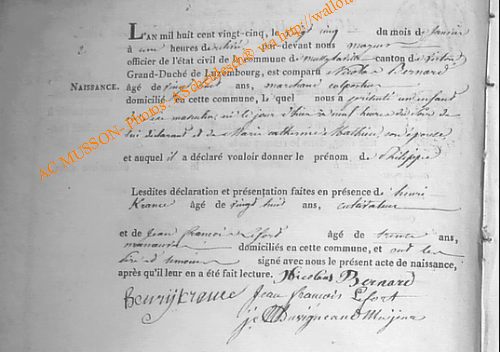 L'AN mil huit cent vingt-cinq, le vingt cinq du mois de janvier
2. à une heures de relevé par-devant nous mayeur
officier de l'état civil de la commune de canton de Virton
Grand-Duché de Luxembourg, est comparu Nicolas Bernard
NAISSANCE. âgé de vingt huit ans, marchand colporteur
domicilié en cette commune, Lequel nous a présenté un enfant
du sexe masculin, né le jour d'hier à neuf heures du soir de
lui déclarant et de Marie catherine Mathieu son épouse
et auquel il a déclaré vouloir donner le prénom de Philippe
Lesdites déclaration et présentation faites en présence de henri
Krance âgé de vingt huit ans, cultivateur
et de Jean françois Lefort âgé de trente ans,
manœuvre domiciliés en cette commune, et ont les
témoins signé avec nous le présent acte de naissance,
après qu'il leur en a été fait lecture. Nicolas Bernard
Henry krance Jean françois Lefort
j Duvigneaud Mayeur
AC MUSSON- Photos A. Schelings © via http://wallon